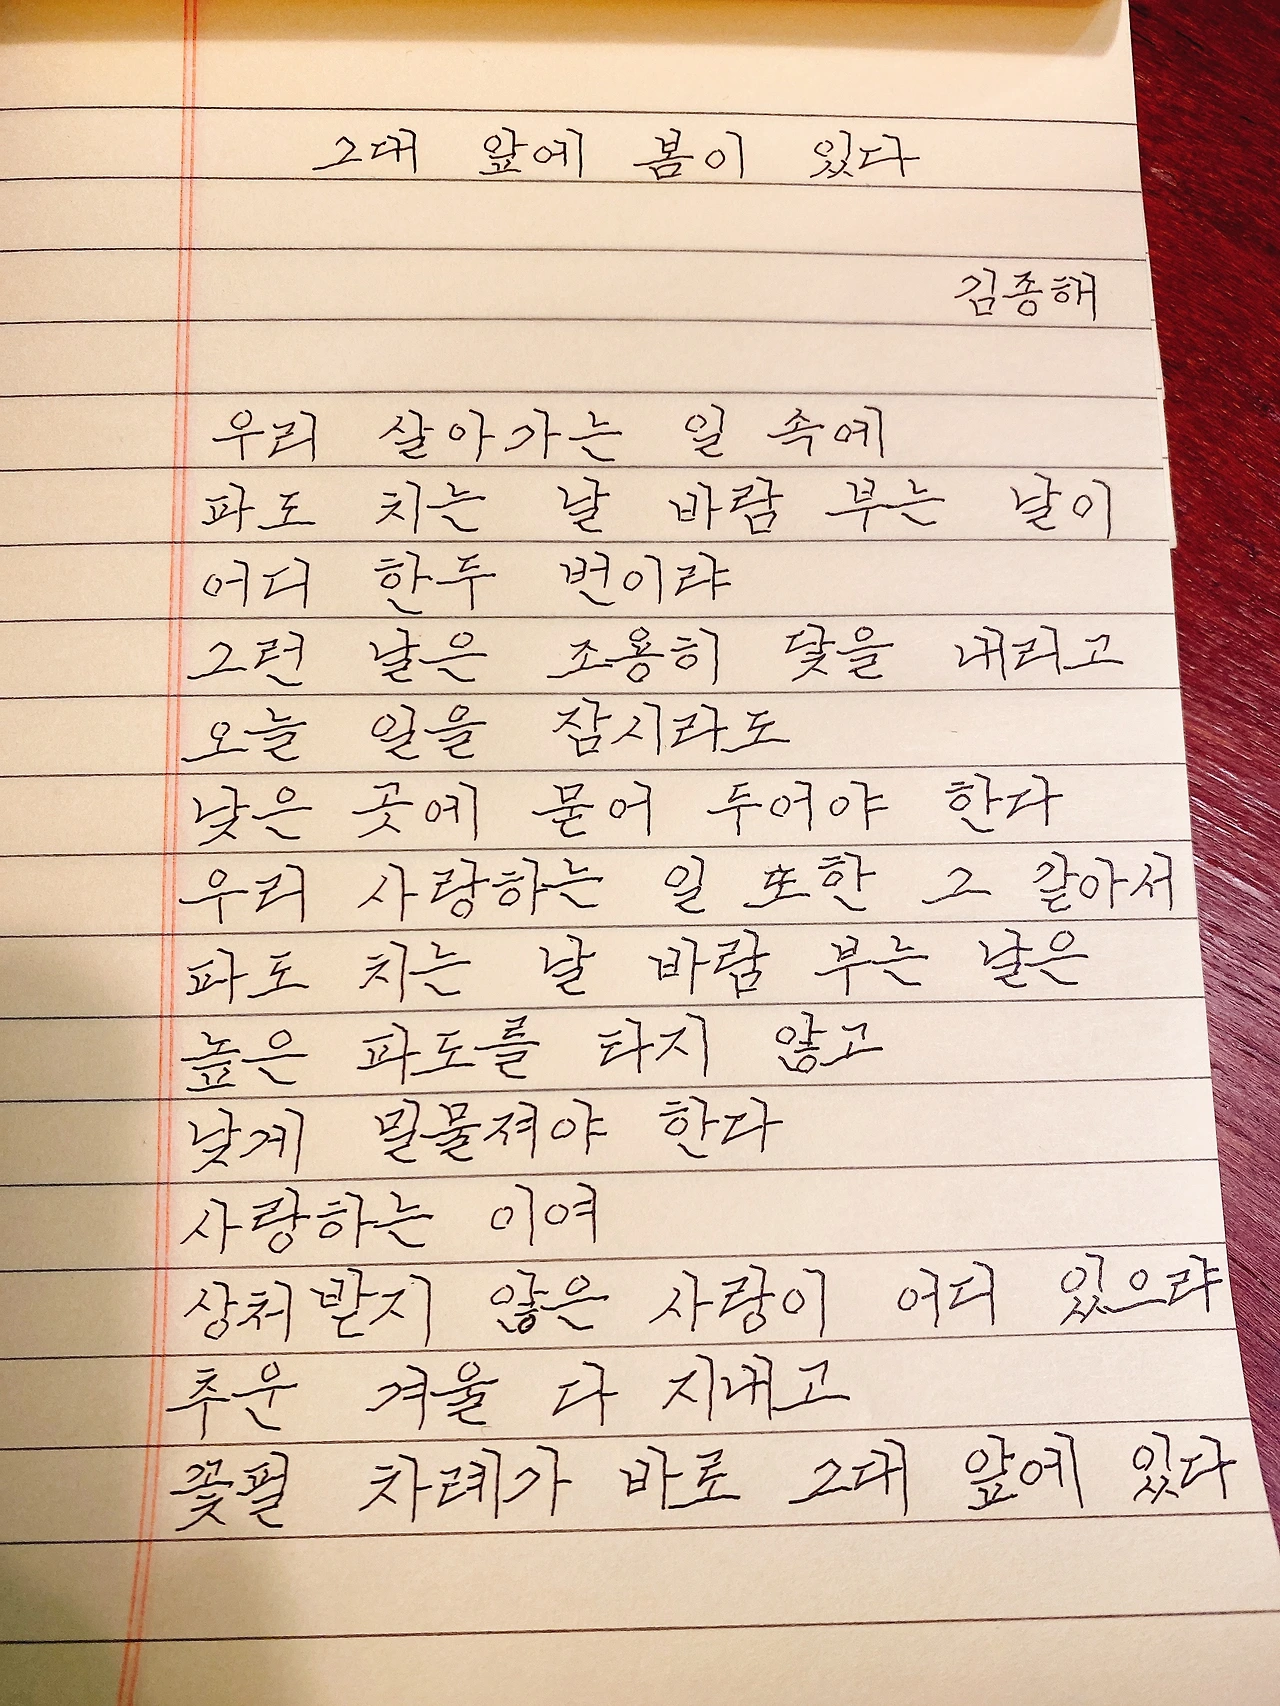 그대 앞에 봄이 있다
김종해
우리 살아가는 일 속에
파도 치는 날 바람 부는 날이
어디 한두 번이랴
그런 날은 조용히 닻을 내리고
오늘 일을 잠시라도
낮은 곳에 묻어 두어야 한다
우리 사랑하는 일 또한 그 같아서
파도 치는 날 바람 부는 날은
높은 파도를 타지 않고
낮게 밀물져야 한다
사랑하는 이여
상처받지 않은 사랑이 어디 있으랴
추운 겨울 다 지내고
꽃필 차례가 바로 그대 앞에 있다